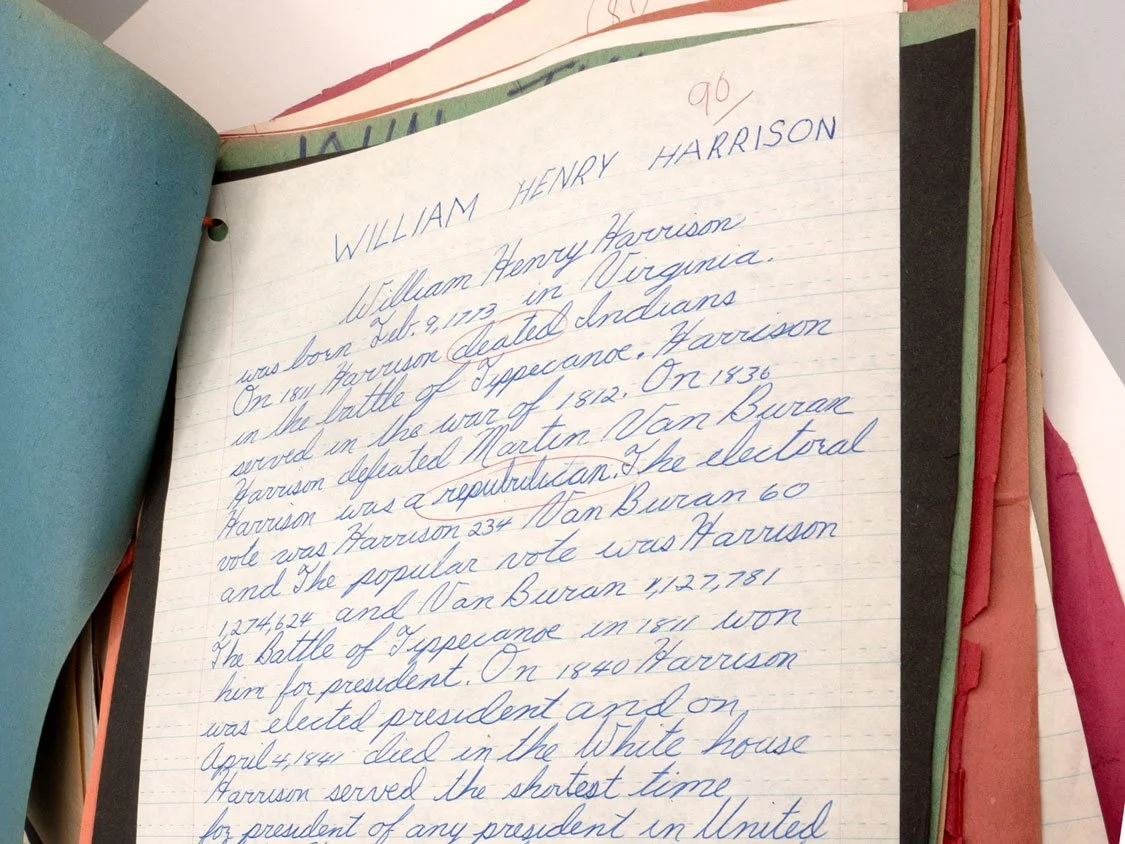 90
WILLIAM HENRY HARRISON
William Henry Harrison
was born Feb. 9, 1773 in Virginia.
On 1811 Harrison deated Indians
in the battle of Tippecanoe. Harrison
served in the war of 1812. On 1836
Harrison defeated Martin Van Buran
Harrison was a repubulican. The electoral
vote was Harrison 234 Van Buran 60
and The popular vote was Harrison
1,274,624 and Van Buran 1,127,781
The Battle of Tippecanoe in 1811 won
him for president. On 1840 Harrison
was elected president and on
April 4, 1841 died in the White house
Harrison served the shortest time
for president of any president in United